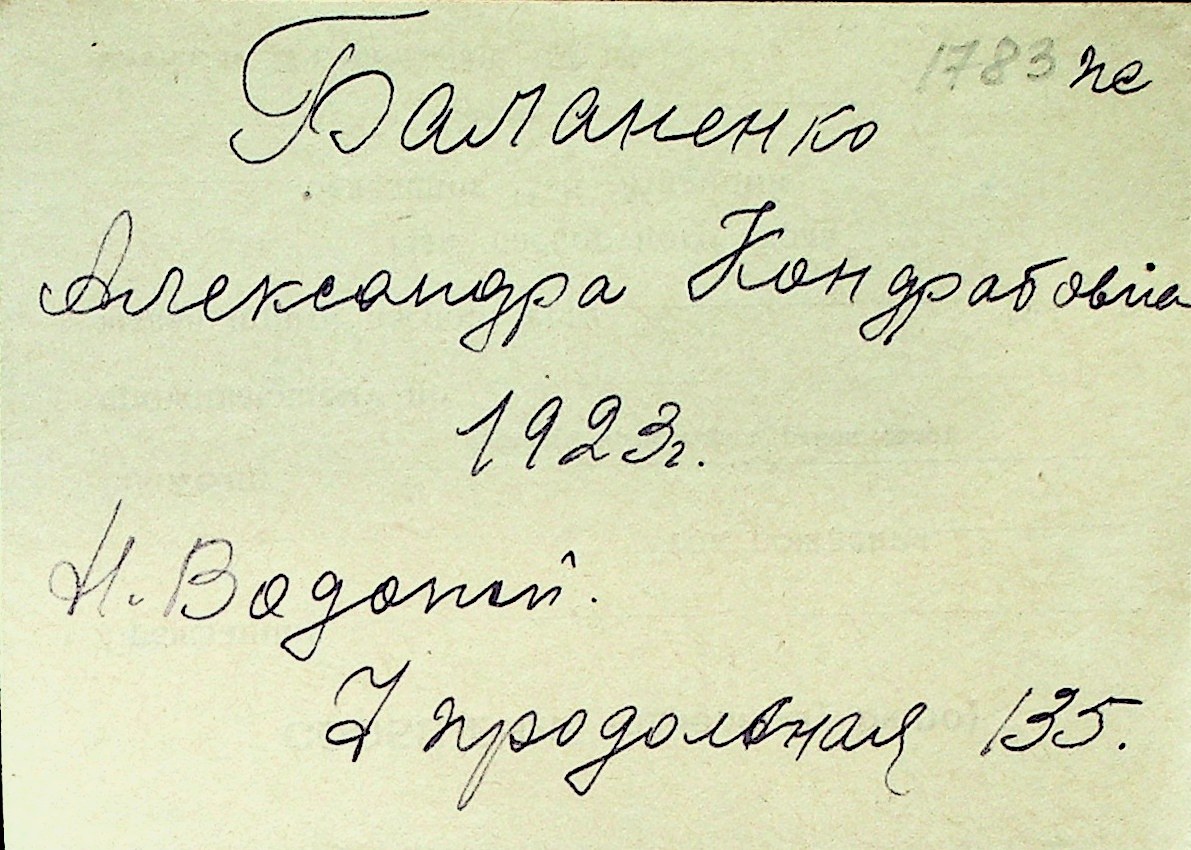 1783 пс
Баланенко
Александра Кондратовна
1923г.
Н. Водопой.
7 продольная 135.